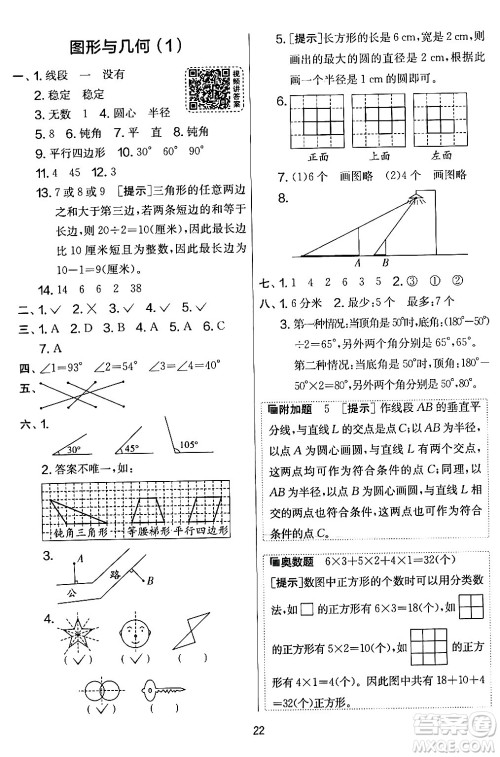 图形与几何（1）
一、1. 线段 一 没有
2. 稳定 稳定
3. 无数 1 4. 圆心 半径
5. 8 6. 钝角 7. 平 直
视频讲答案
8. 钝角
9. 平行四边形 10. 30° 60° 90°
11. 4 45 12. 15
13. 7或8或9 [提示]三角形的任意两边
之和大于第三边，若两条短边的和等于
周长的一半，则 20÷2=10(厘米)，10
厘米去掉长边为整数，因此最长边为
10-1=9(厘米)。
14. 14 6 6 2 38
二、1. ✓ 2. × 3. ✓ 4. ✓ 5. ✓
三、1. C 2. D 3. B 4. A 5. B 6. A
7. A
四、∠1=93° ∠2=54° ∠3=40°
五、
六、1.
30° 45° 105°
2. 答案不唯一，如：
钝角三角形 等腰梯形 平行四边形
3.
A 路 B
公
4.
(✓) (✓) ( )
(✓) ( )
5. [提示]长方形的长是 6 cm，宽是 2 cm，
画出的最大的圆的直径是 2 cm，所以画
一个半径是 1 cm 的圆即可。
6.
正面 上面 左面
7. (1)6个 画图略 (2)4个 画图略
8.
A B
七、1. 1 4 2 6 3 5 2. ③ ① ①
八、1. 6分米 2. 最少：5个 最多：7个
3. 第一种情况：当顶角是50°时，(180°-
50°)÷2=65°，另外两个角分别是65°、
65°。
第二种情况：当底角是50°时，180°-
50°×2=80°，顶角是80°。
附加题 5 [提示]作线段AB的垂直平
分线，与直线L的交点是点C；以点A为
圆心画圆，与直线L有两个交点，
这两点均可作为符合条件的点C；同理，
以点B为圆心画圆，与直线L有两个交
点，这两点均可作为符合条件的点C。共
5个符合条件的点C。
奥数题 6×3+5×2+4×1=32(个)
[提示]数图中正方形的个数时可以用分类数
法，如□的正方形有 6×3=18(个)，如
的正方形有 5×2=10(个)，如
的正方形有 4×1=4(个)，因此图中共有 18+10+4
=32(个)正方形。
22
答案圈
MXQE.COM